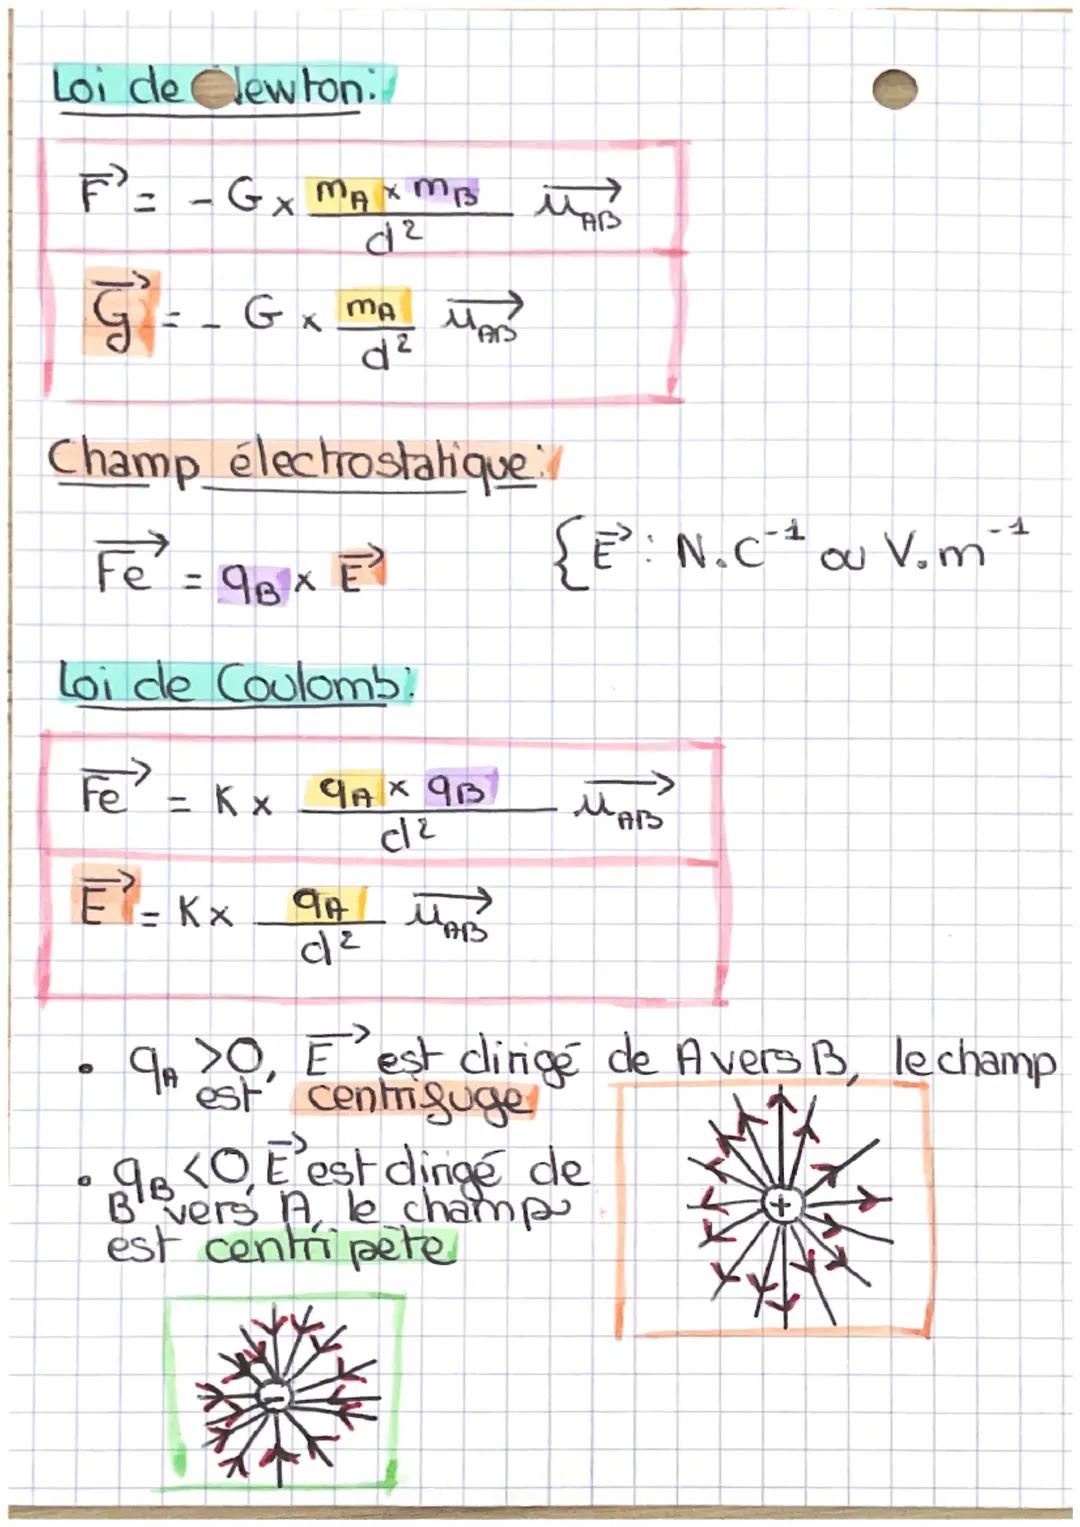 Loi de Newton:
F⃗ = - G × (mA × mB)/d² u⃗AB
G⃗ = - G × mA/d² u⃗AB
Champ électrostatique:
Fe⃗ = qB × E⃗ { E⃗ : N.C⁻¹ ou V.m⁻¹
Loi de Coulomb:
Fe⃗ = K × (qA × qB)/d² u⃗AB
E⃗ = K × qA/d² u⃗AB
• qA >0, E⃗ est dirigé de A vers B, le champ
est centrifuge
• qB <0, E⃗ est dirigé de
B vers A, le champ
est centripète
+
-